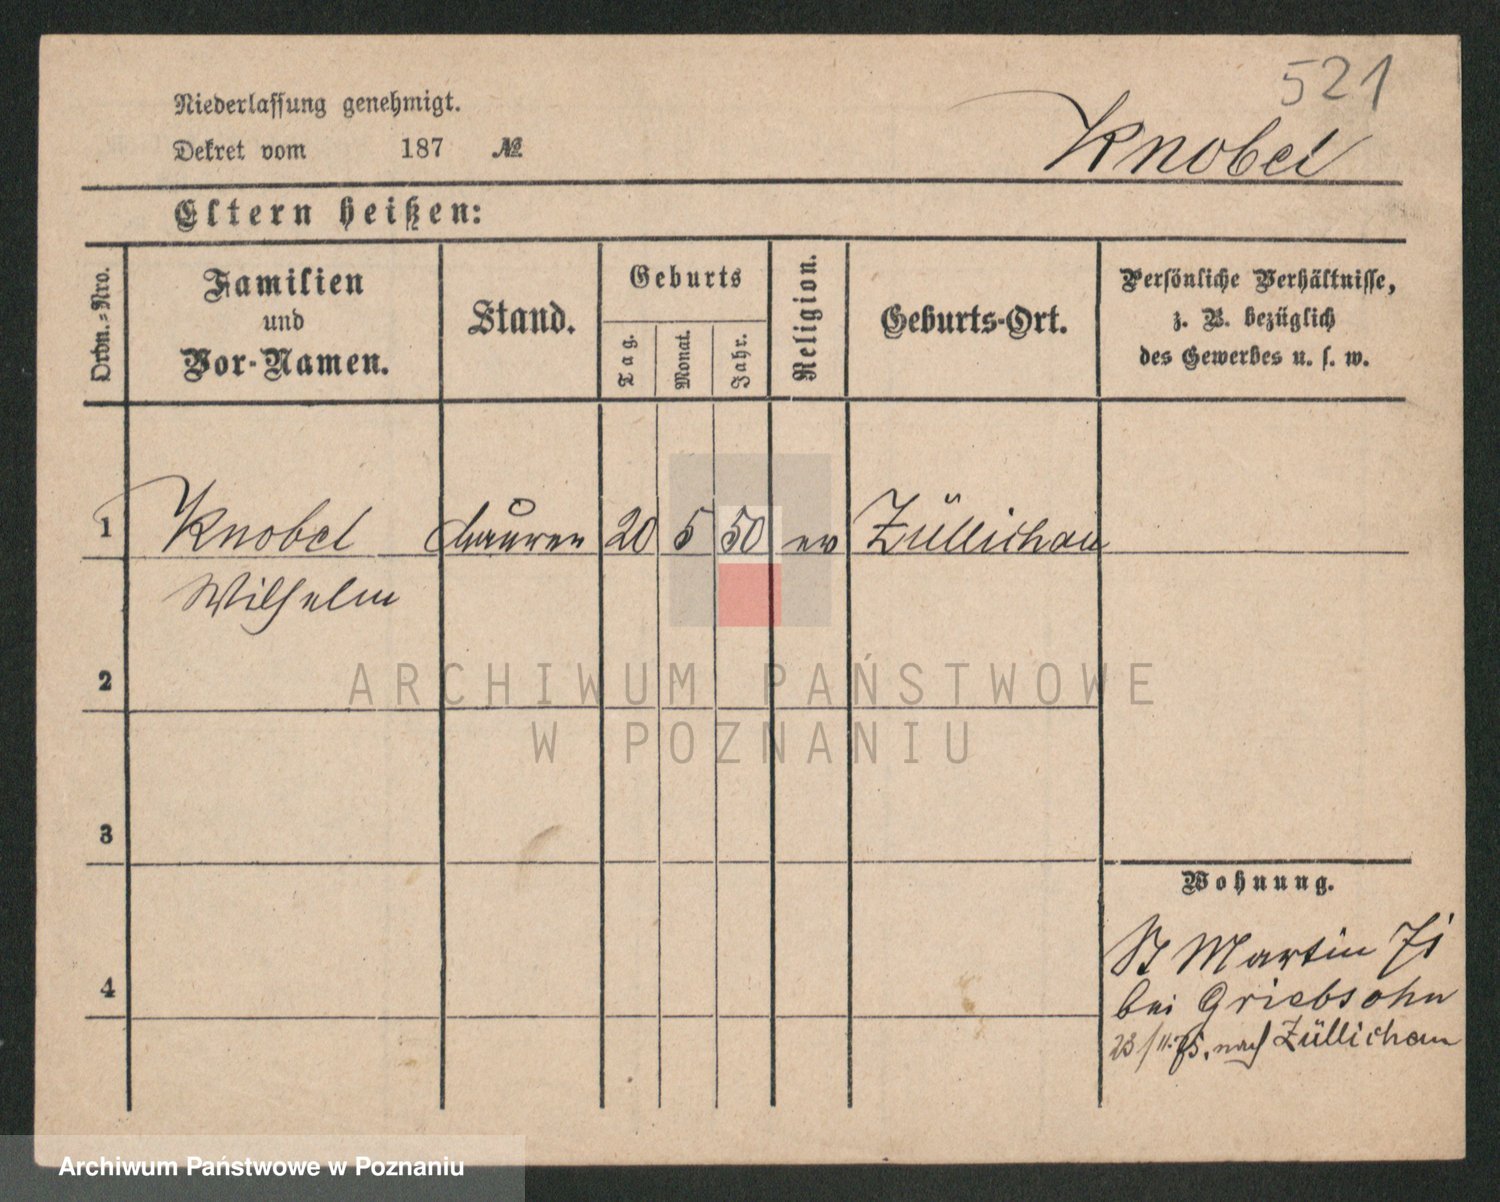 521
Niederlassung genehmigt.
Dekret vom 187 №
Knobel
Eltern heißen:
Ordn.-Nro.
Familien
und
Vor-Namen.
Stand.
Geburts
Tag.
Monat.
Jahr.
Religion.
Geburts-Ort.
Persönliche Verhältnisse,
z. B. bezüglich
des Gewerbes u. s. w.
1 Knobel 20 5 50 ev Züllichau
Wilhelm
2
3
4
Wohnung.
St Martin
bei Griebsohn
23/11.75. nach Züllichau
ARCHIWUM PAŃSTWOWE
W POZNANIU
Archiwum Państwowe w Poznaniu